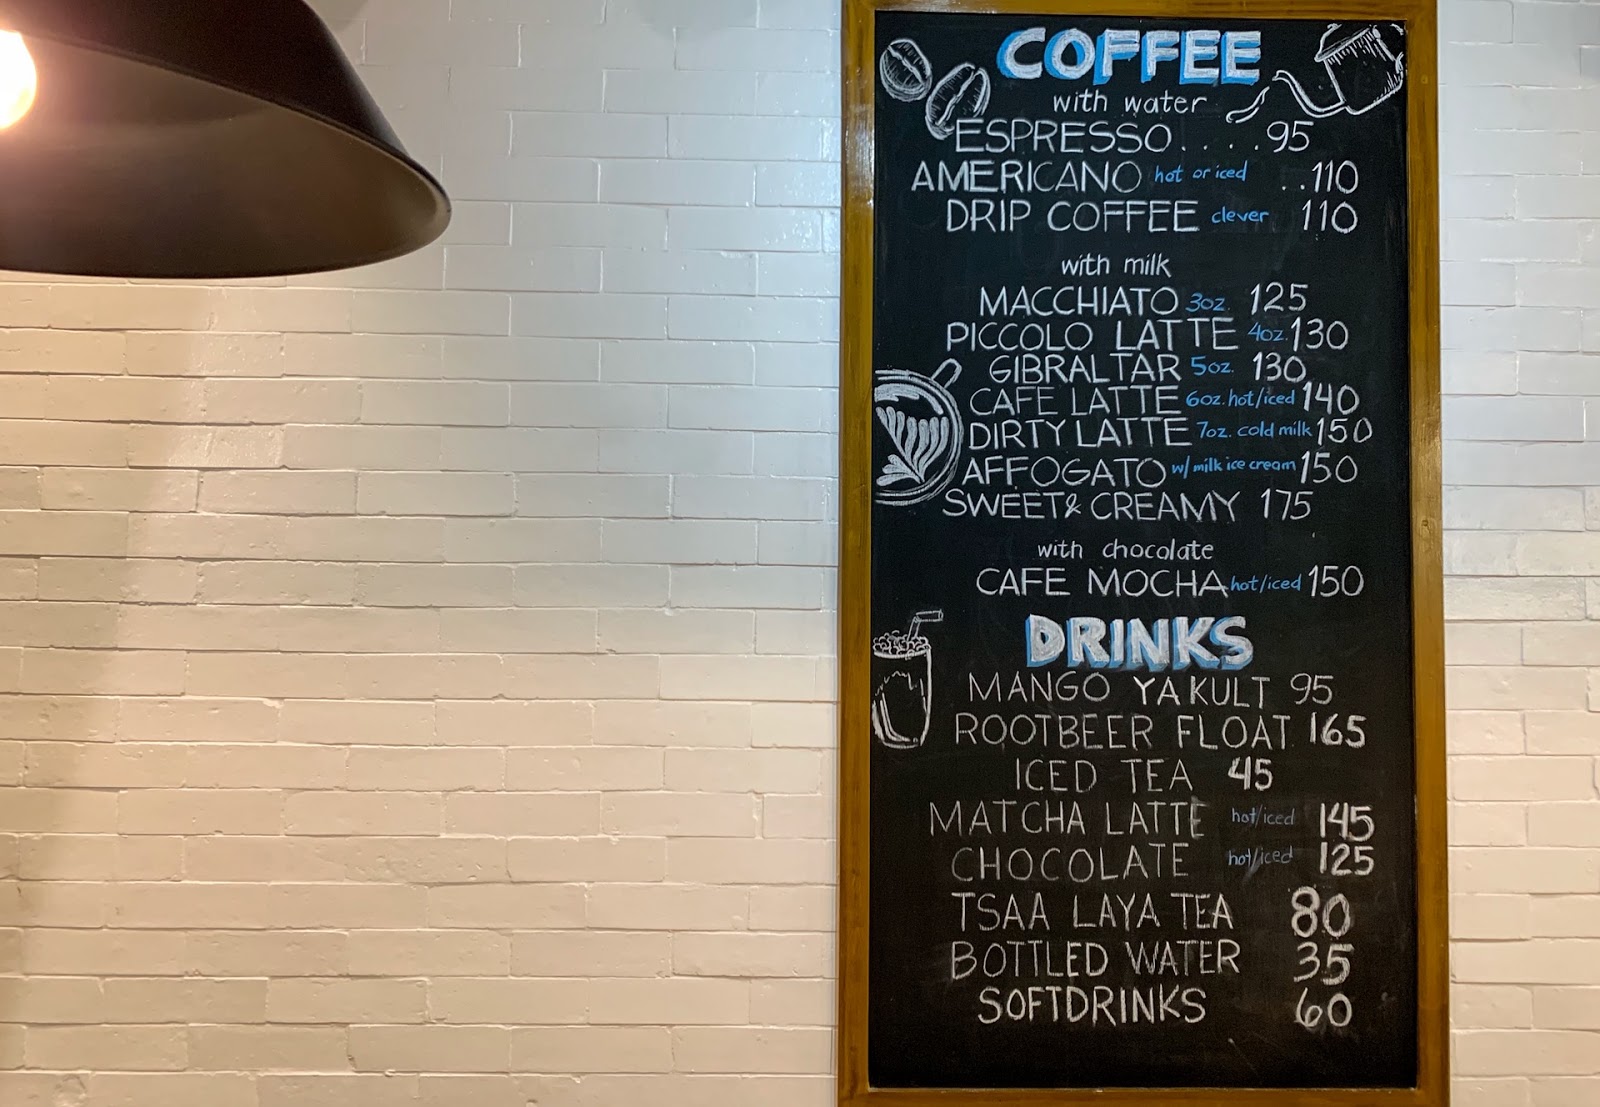 COFFEE
with water
ESPRESSO....95
AMERICANO hot or iced ..110
DRIP COFFEE clever 110
with milk
MACCHIATO 3oz. 125
PICCOLO LATTE 4oz. 130
GIBRALTAR 5oz. 130
CAFE LATTE 6oz. hot/iced 140
DIRTY LATTE 7oz. cold milk 150
AFFOGATO w/ milk ice cream 150
SWEET & CREAMY 175
with chocolate
CAFE MOCHA hot/iced 150
DRINKS
MANGO YAKULT 95
ROOTBEER FLOAT 165
ICED TEA 45
MATCHA LATTE hot/iced 145
CHOCOLATE hot/iced 125
TSAA LAYA TEA 80
BOTTLED WATER 35
SOFTDRINKS 60